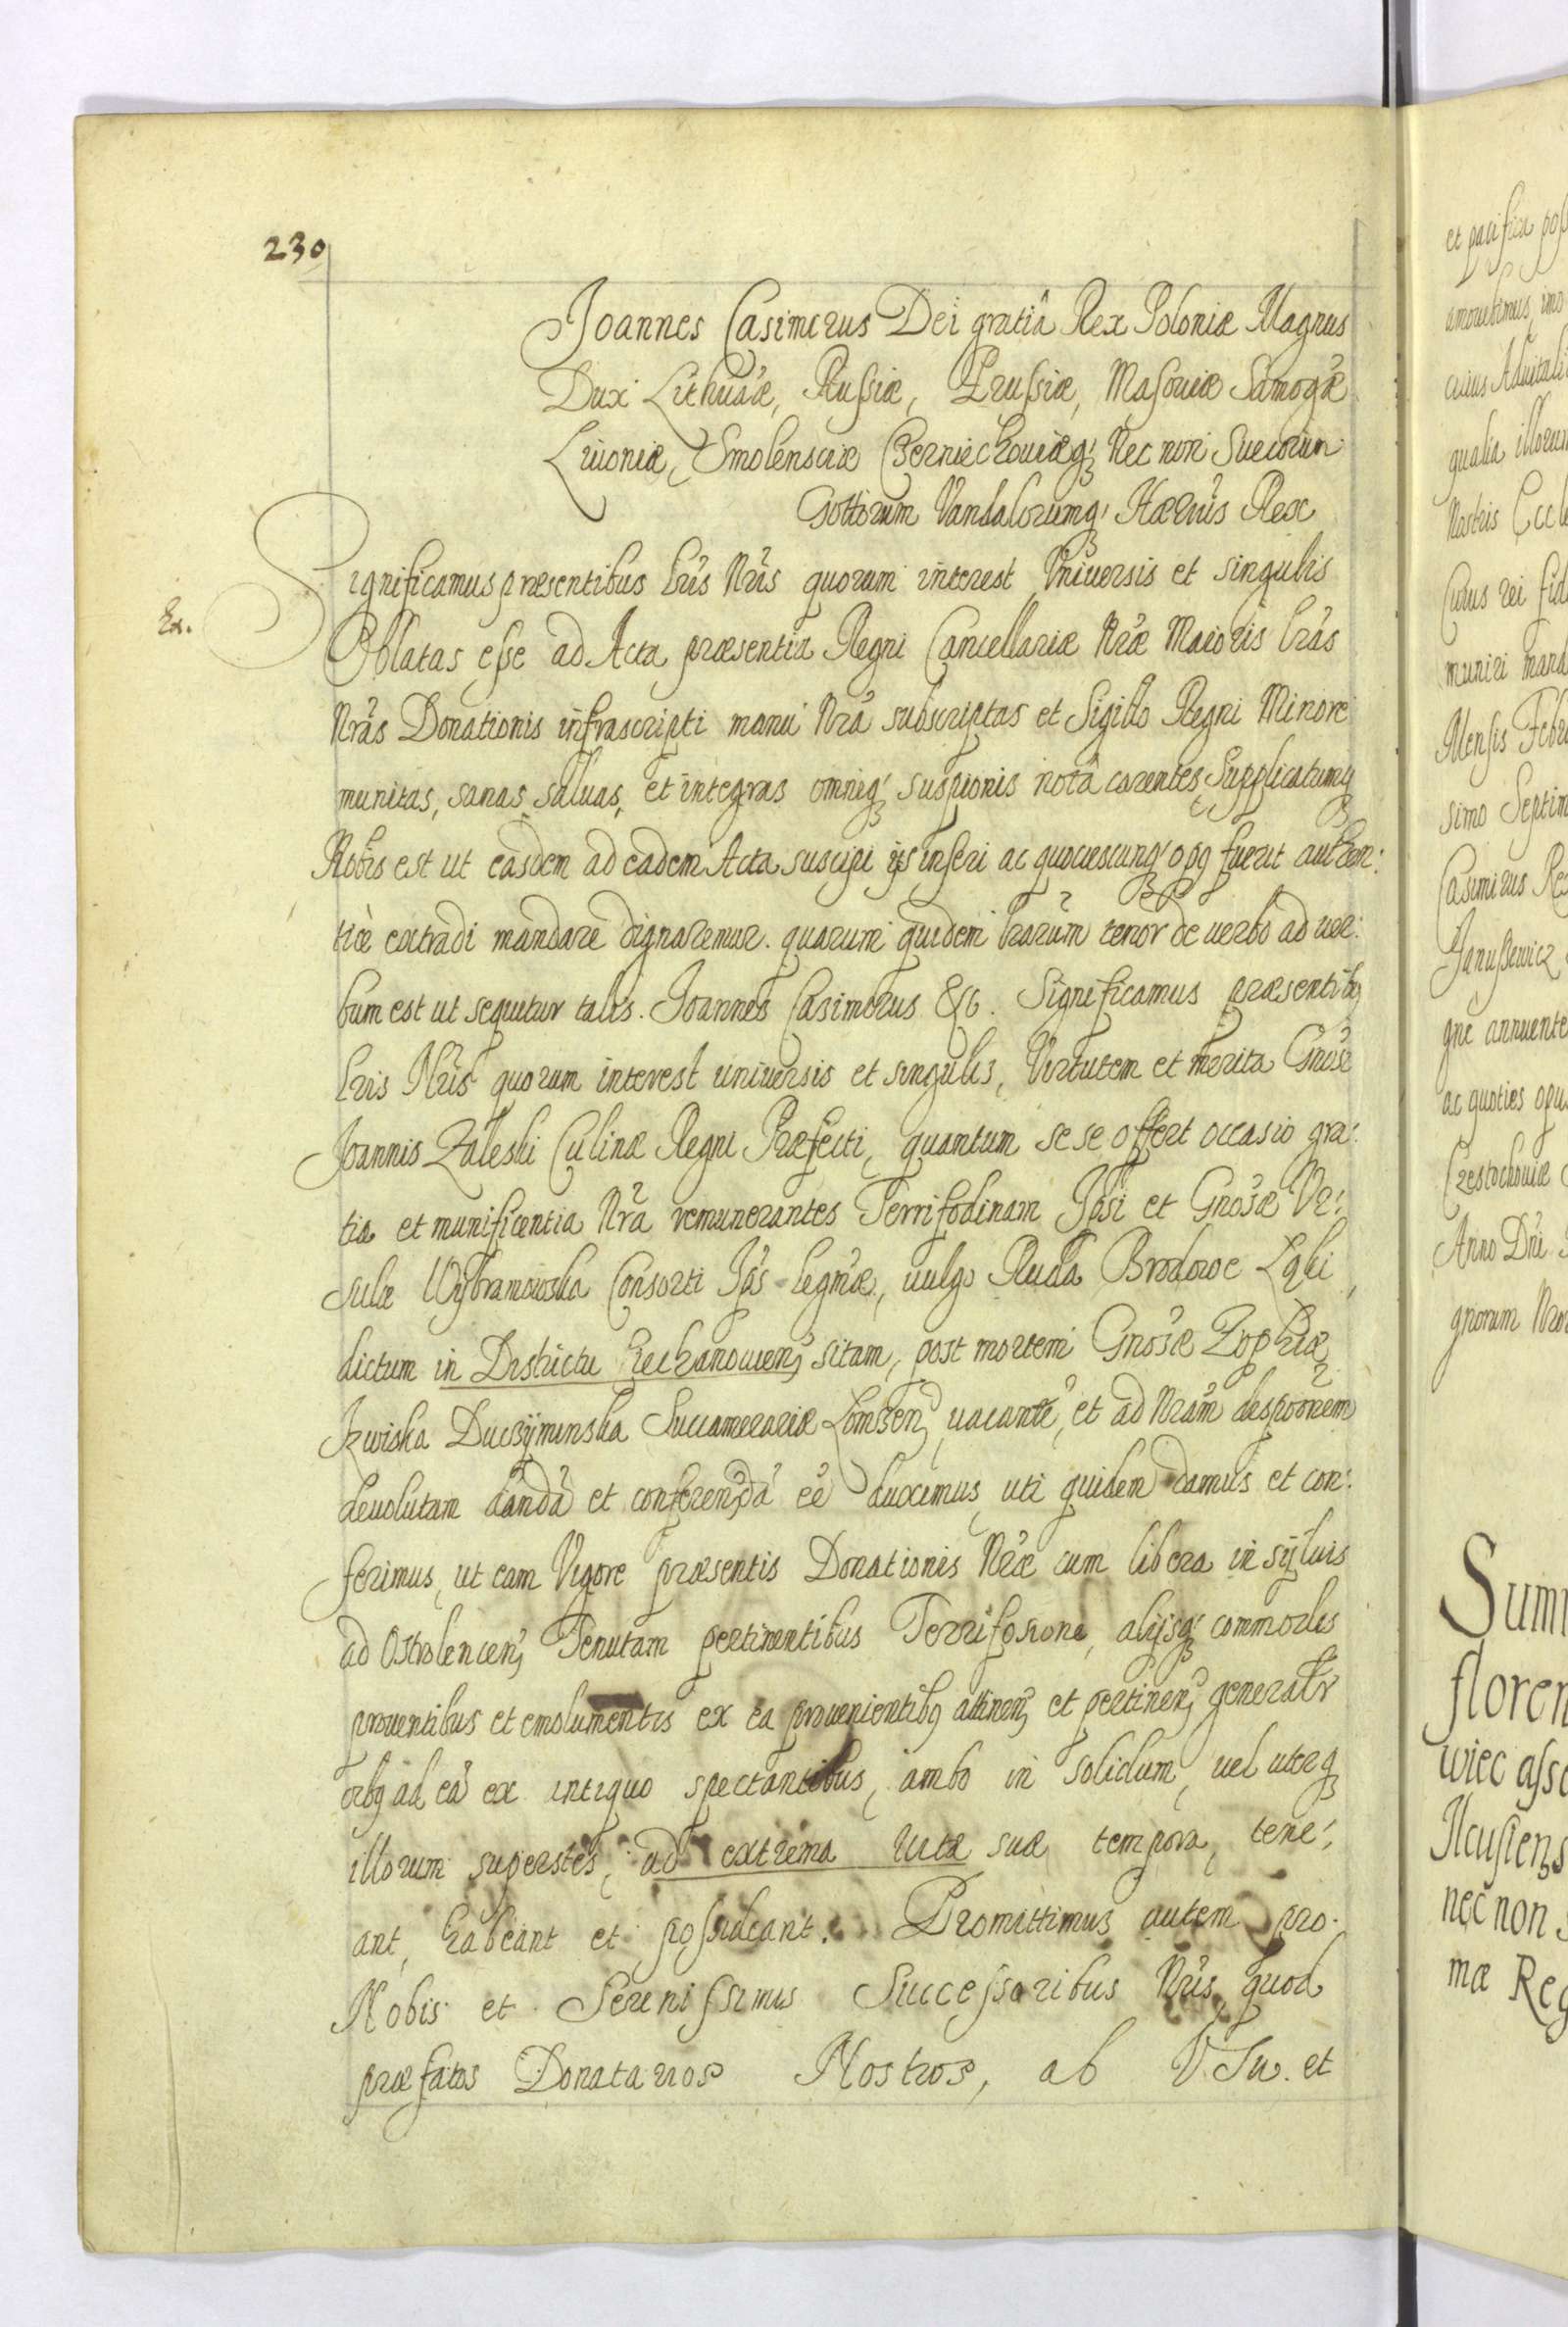 230
Joannes Casimirus Dei gratiâ Rex Poloniæ Magnus
Dux Lithuãæ, Russiæ, Prussiæ, Masouiæ Samogæ
Liuoniæ, Smolensciæ Czerniechouiæq; Nec non Suecorum
Gottorum Vandalorumq; Hærius Rex
Significamus præsentibus Lris Nris quorum interest Vniuersis et singulis
Ex.
Oblatas esse ad Acta præsentia Regni Cancellariæ Nræ Maioris Lras
Nras Donationis infrascripti manu Nra subscriptas et Sigillo Regni Minore
munitas, sanas saluas, et integras omniq; suspionis notâ carentes, Supplicatumq;
Nobis est ut easdem ad eadem Acta suscipi ijs inseri ac quotiescunq; opq fuerit authen:
ticè extradi mandare dignaremur. quarum quidem Lrarum tenor de uerbo ad uer:
bum est ut sequitur talis. Joannes Casimirus &c. Significamus præsentibq
Lris Nris quorum interest uniuersis et singulis, Virtutem et merita Gnosi
Joannis Zaleski Culinæ Regni Præfecti, quantum se se offert occasio gra:
tia et munificentia Nra remunerantes Ferrifodinam Ipsi et Gnosæ Vr:
sulæ Wybramowska Consorti Ips legmæ, uulgo Ruda Brodowe Łąki,
dictum in Districtu Ciechanouien; sitam, post mortem Gnosæ Zophiæ
Izwiska Duczyminska Succamerariæ Lomzen; uacante, et ad Nram disponem
deuolutam dandã et conferendã eê duximus, uti quidem damus et con:
ferimus, ut eam Vigore præsentis Donationis Nræ cum libera in syluis
ad Ostrolencen; Tenutam pertinentibus Ferrifosione, alijsq; commodis
prouentibus et emolumentis ex ea prouenientibq attinen; et pertinen; generalr
oibq ad eã ex antiquo spectantibus, ambo in solidum, uel uterq;
illorum superstes, ad extrema uitæ suæ tempora, tene:
ant, habeant et possideant. Promittimus autem pro
Nobis et Serenissimis Successoribus Nris, quod
præfatos Donatarios Nostros, ab Vsu et
et pacifica
amouebimus, imo
cuius
qualia illorum
Nostris
Cuius rei
muniri
Mensis
simo
Casimirus
Janussewicz
gne annuente
ac quoties
Czestochouiæ
Anno Dni
gnorum
wiec
nec non
mæ